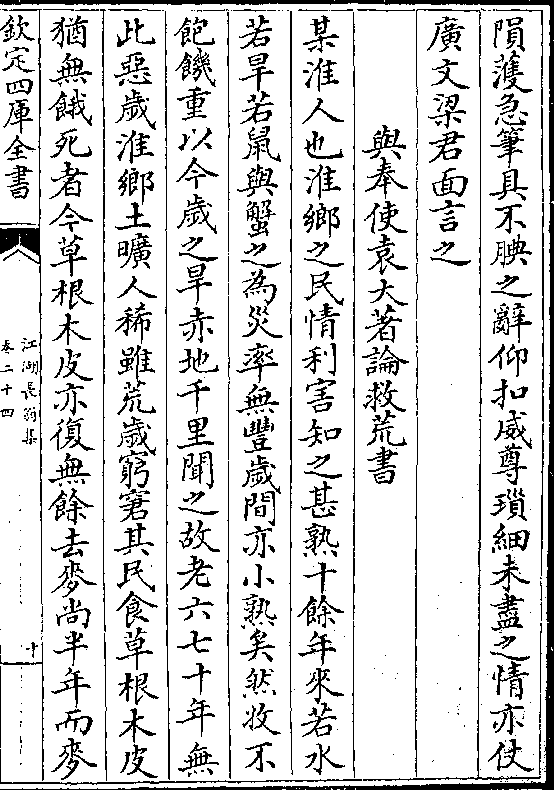 隕䕶急筆具不腆之辭仰扣威尊瑣細未盡之情亦仗
廣文梁君面言之
與奉使袁大著論救荒書
某淮人也淮鄉之民情利害知之甚熟十餘年來若水
若旱若鼠與蟹之為災率無豐歲間亦小熟矣然收不
飽饑重以今歲之旱赤地千里聞之故老六七十年無
此惡歲淮鄉土曠人稀雖荒歲窮窘其民食草根木皮
猶無餓死者今草根木皮亦復無餘去麥尚半年而麥
欽定四庫全書
江湖長翁集
卷二十四
十